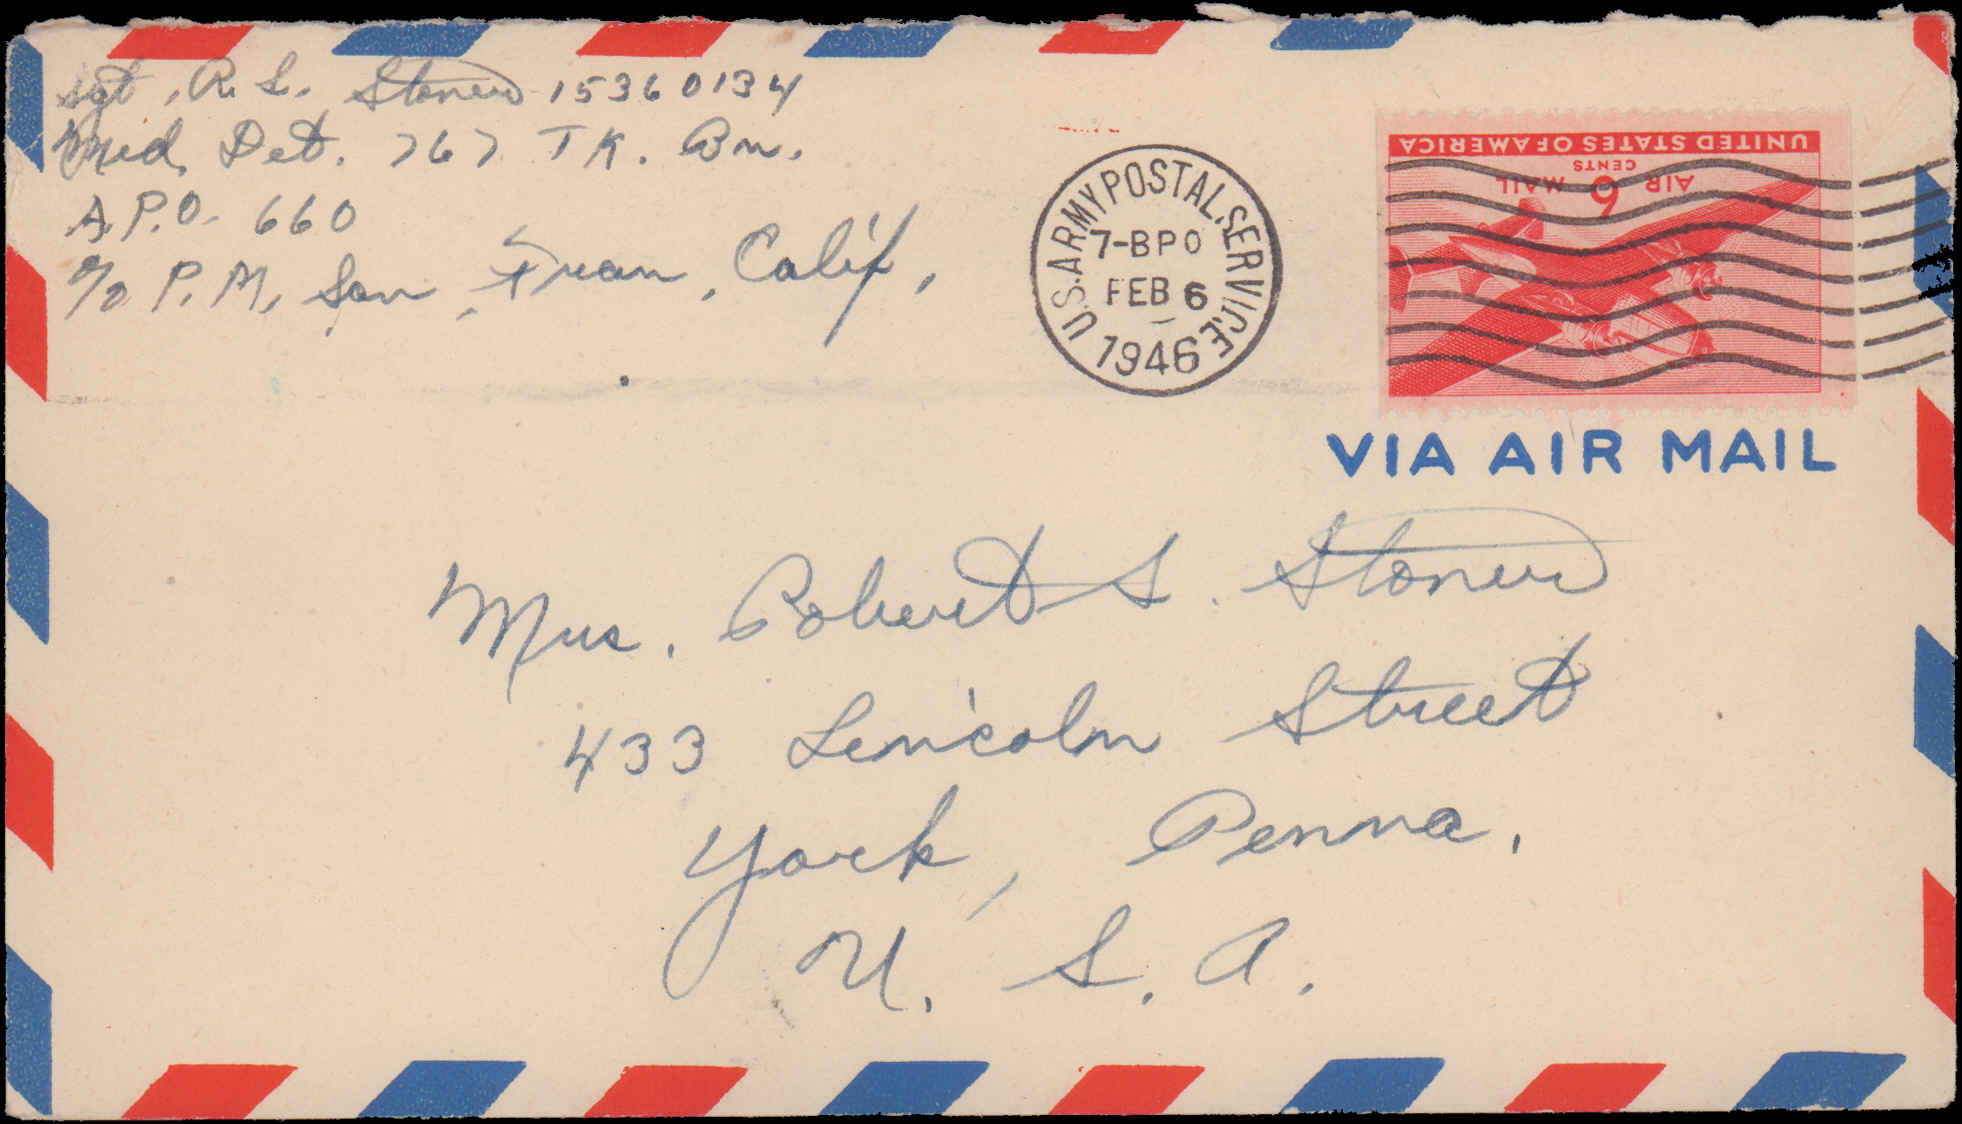 Sgt. R. S. Stoner 15360134
Med. Det. 767 TK. Bn.
A.P.O. 660
c/o P.M. San Fran, Calif,
U.S. ARMY POSTAL SERVICE
7-BPO
FEB 6
1946
UNITED STATES OF AMERICA
6 CENTS
AIR MAIL
VIA AIR MAIL
Mrs. Robert S. Stoner
433 Lincoln Street
York, Penna.
U. S. A.